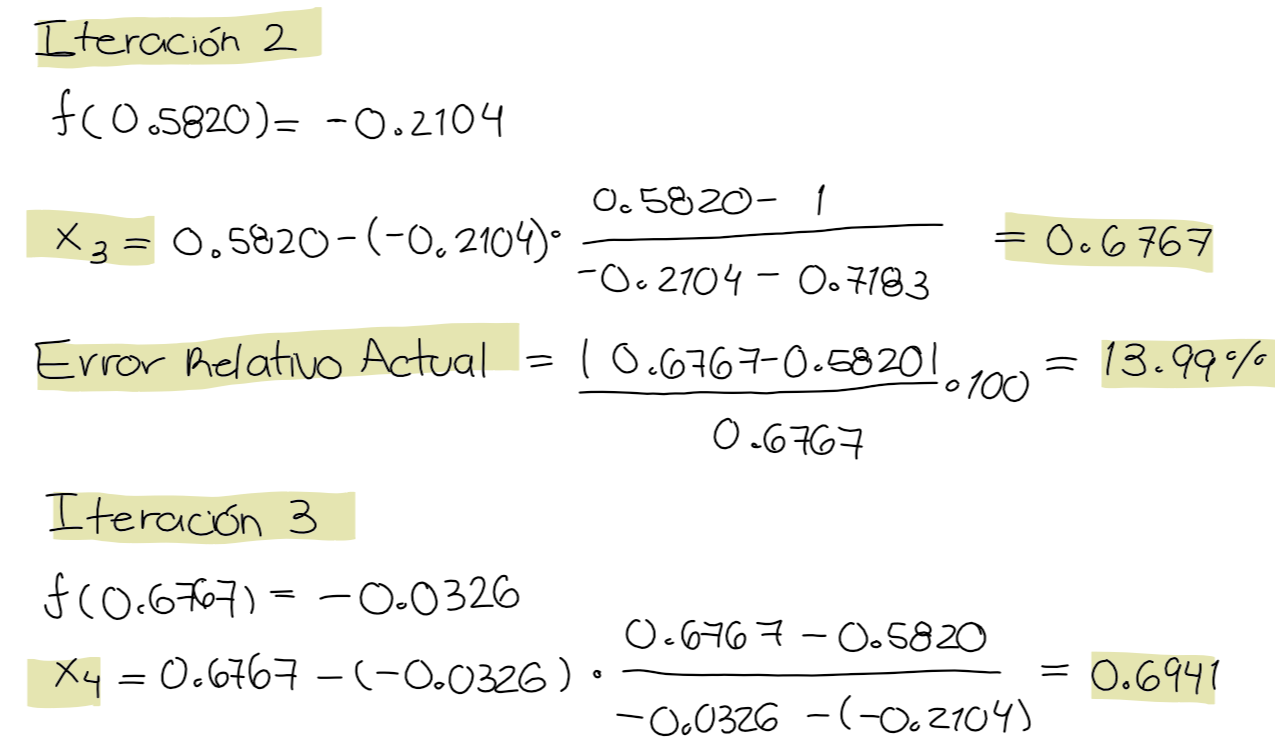 Iteración 2
f(0.5820) = -0.2104
x₃ = 0.5820 - (-0.2104) · (0.5820 - 1)/(-0.2104 - 0.7183) = 0.6767
Error Relativo Actual = |0.6767 - 0.5820|/0.6767 · 100 = 13.99%
Iteración 3
f(0.6767) = -0.0326
x₄ = 0.6767 - (-0.0326) · (0.6767 - 0.5820)/(-0.0326 - (-0.2104)) = 0.6941